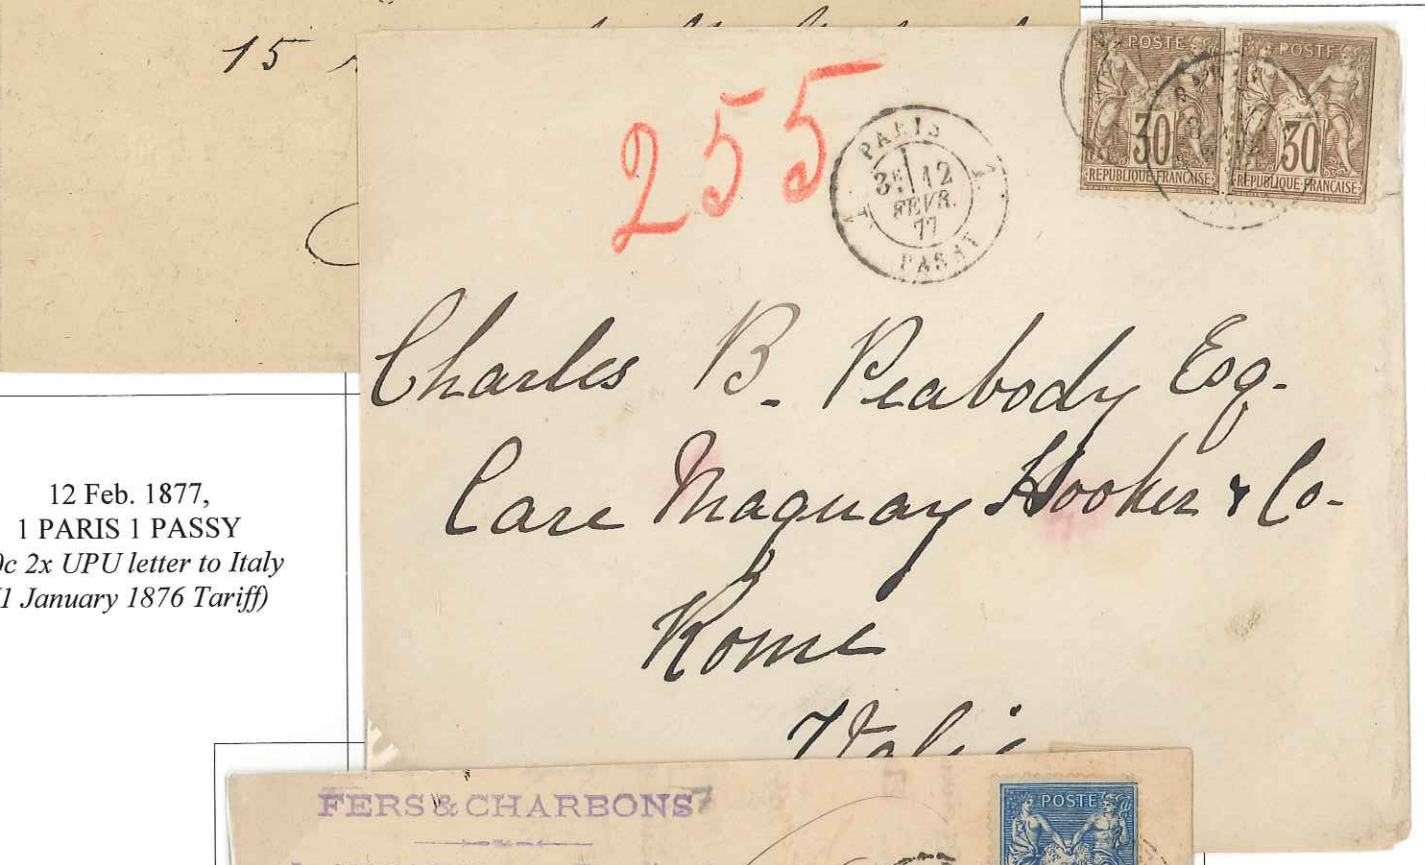 15
255
PARIS
3E 12
FEVR.
77
PASSY
1 1
POSTE
30
REPUBLIQUE FRANCAISE
POSTE
30
REPUBLIQUE FRANCAISE
Charles B. Peabody Esq.
Care Maquay Hooker & Co-
Rome
Italie
12 Feb. 1877,
1 PARIS 1 PASSY
c 2x UPU letter to Italy
1 January 1876 Tariff)
FERS & CHARBONS
POSTE